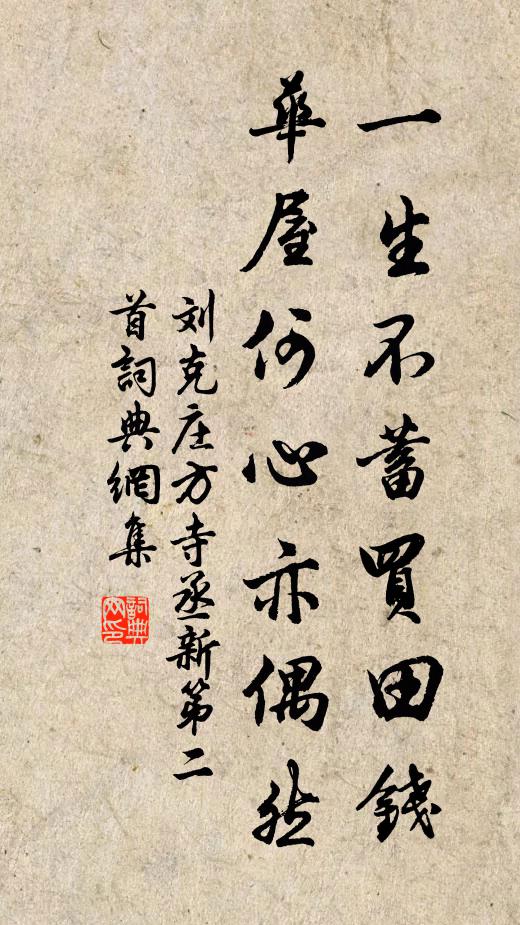 一生不蓄買田錢
華屋何心亦偶然
刘克庄方寺丞新第二
首詞典網集
詞典
网印